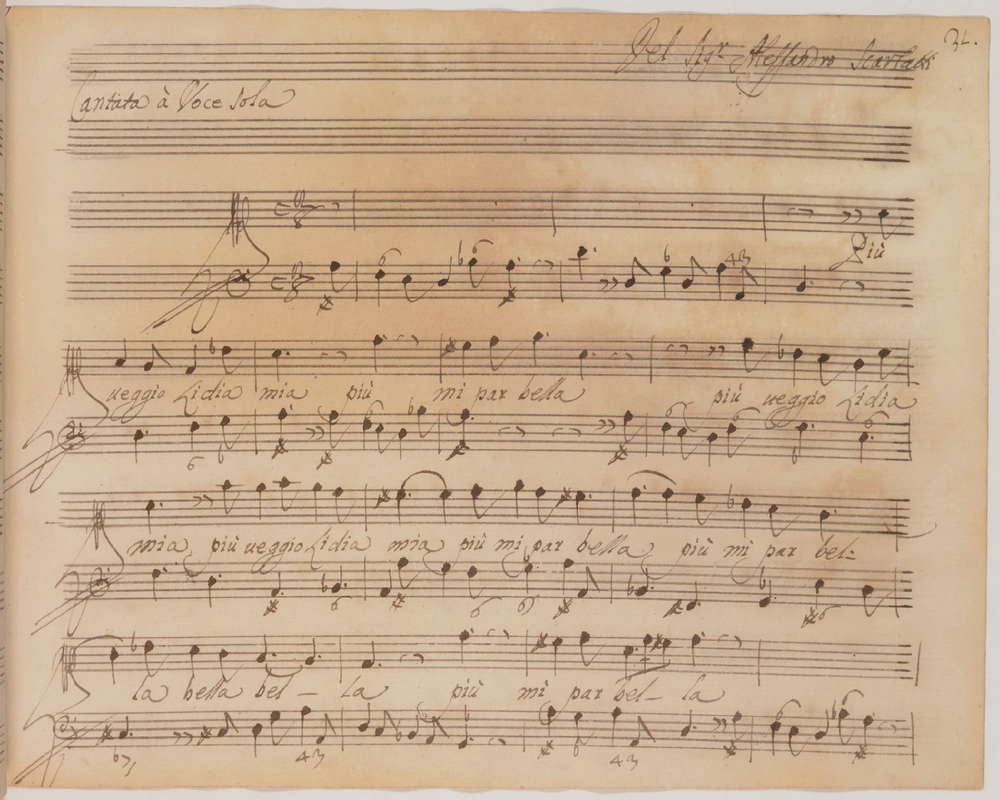 Del Sig.r Alessandro Scarlatti
Cantata à Voce sola
Più
ueggio Lidia mia più mi par bella più ueggio Lidia
mia più ueggio Lidia mia più mi par bella più mi par bel=
la bella bel – la più mi par bel – la